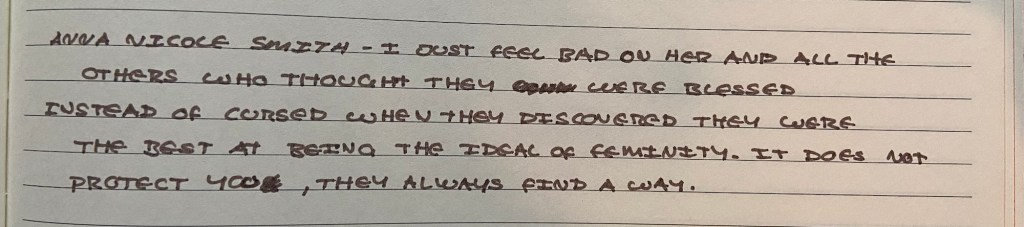 ANNA NICOLE SMITH - I JUST FEEL BAD ON HER AND ALL THE
OTHERS WHO THOUGHT THEY WERE BLESSED
INSTEAD OF CURSED WHEN THEY DISCOVERED THEY WERE
THE BEST AT BEING THE IDEAL OF FEMINITY. IT DOES NOT
PROTECT YOU, THEY ALWAYS FIND A WAY.